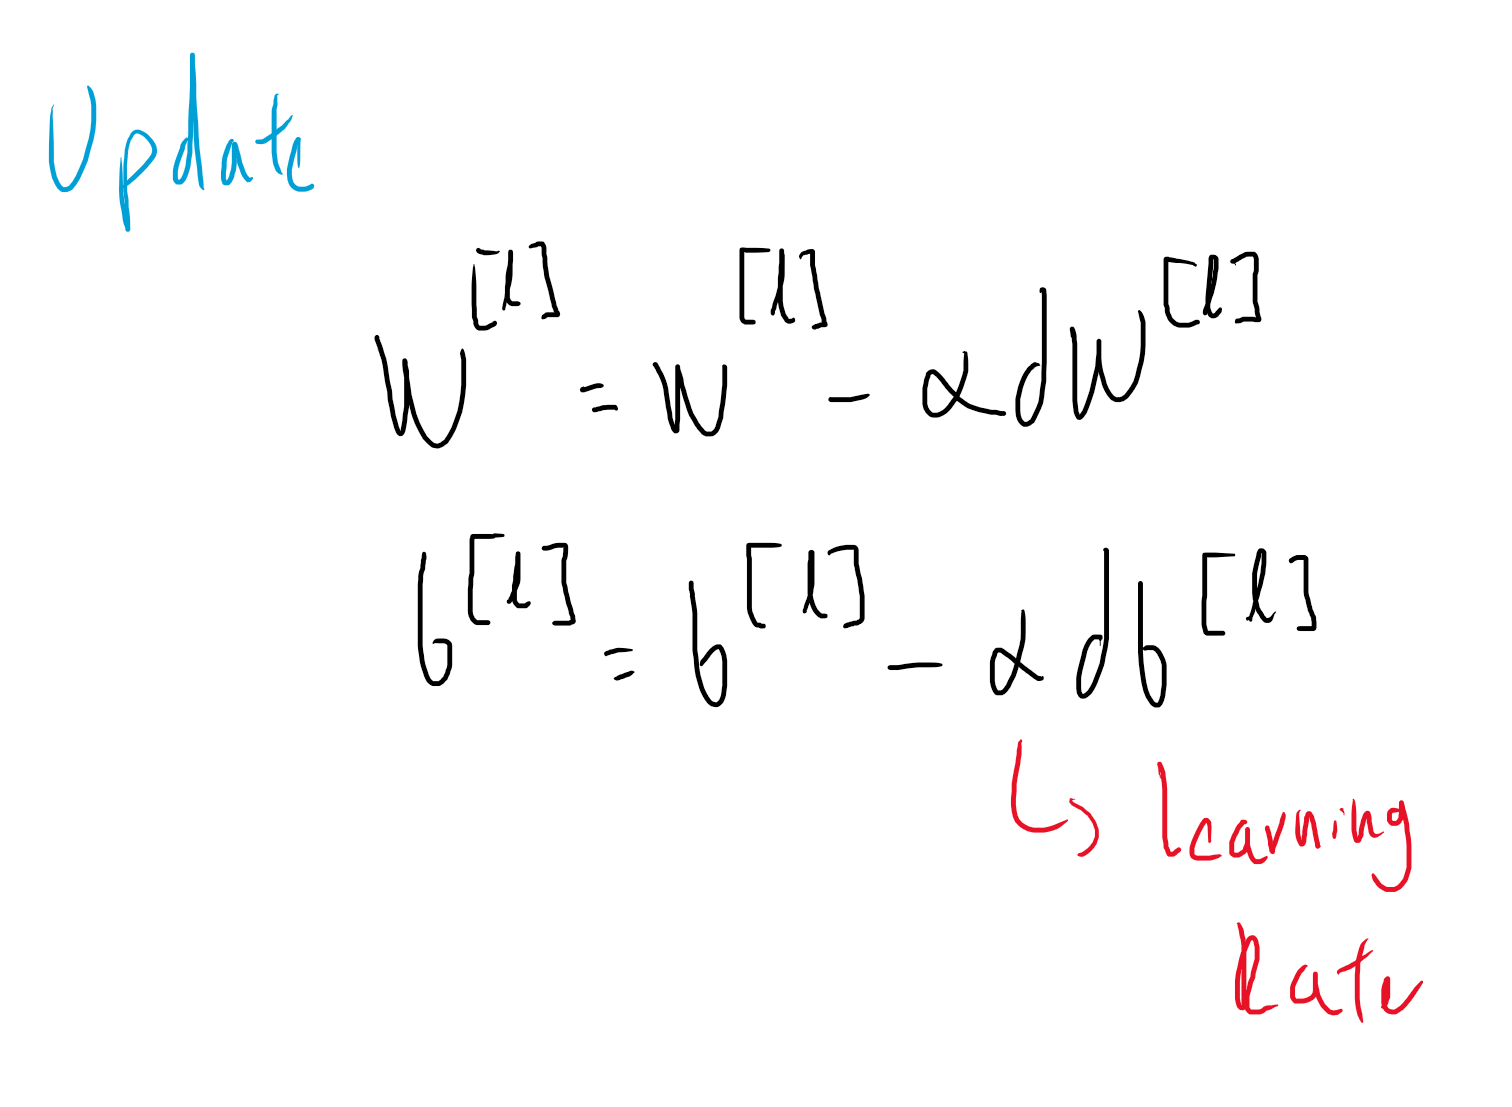 Update
W^[l] = W^[l] - αdW^[l]
b^[l] = b^[l] - αdb^[l]
↳ Learning
Rate